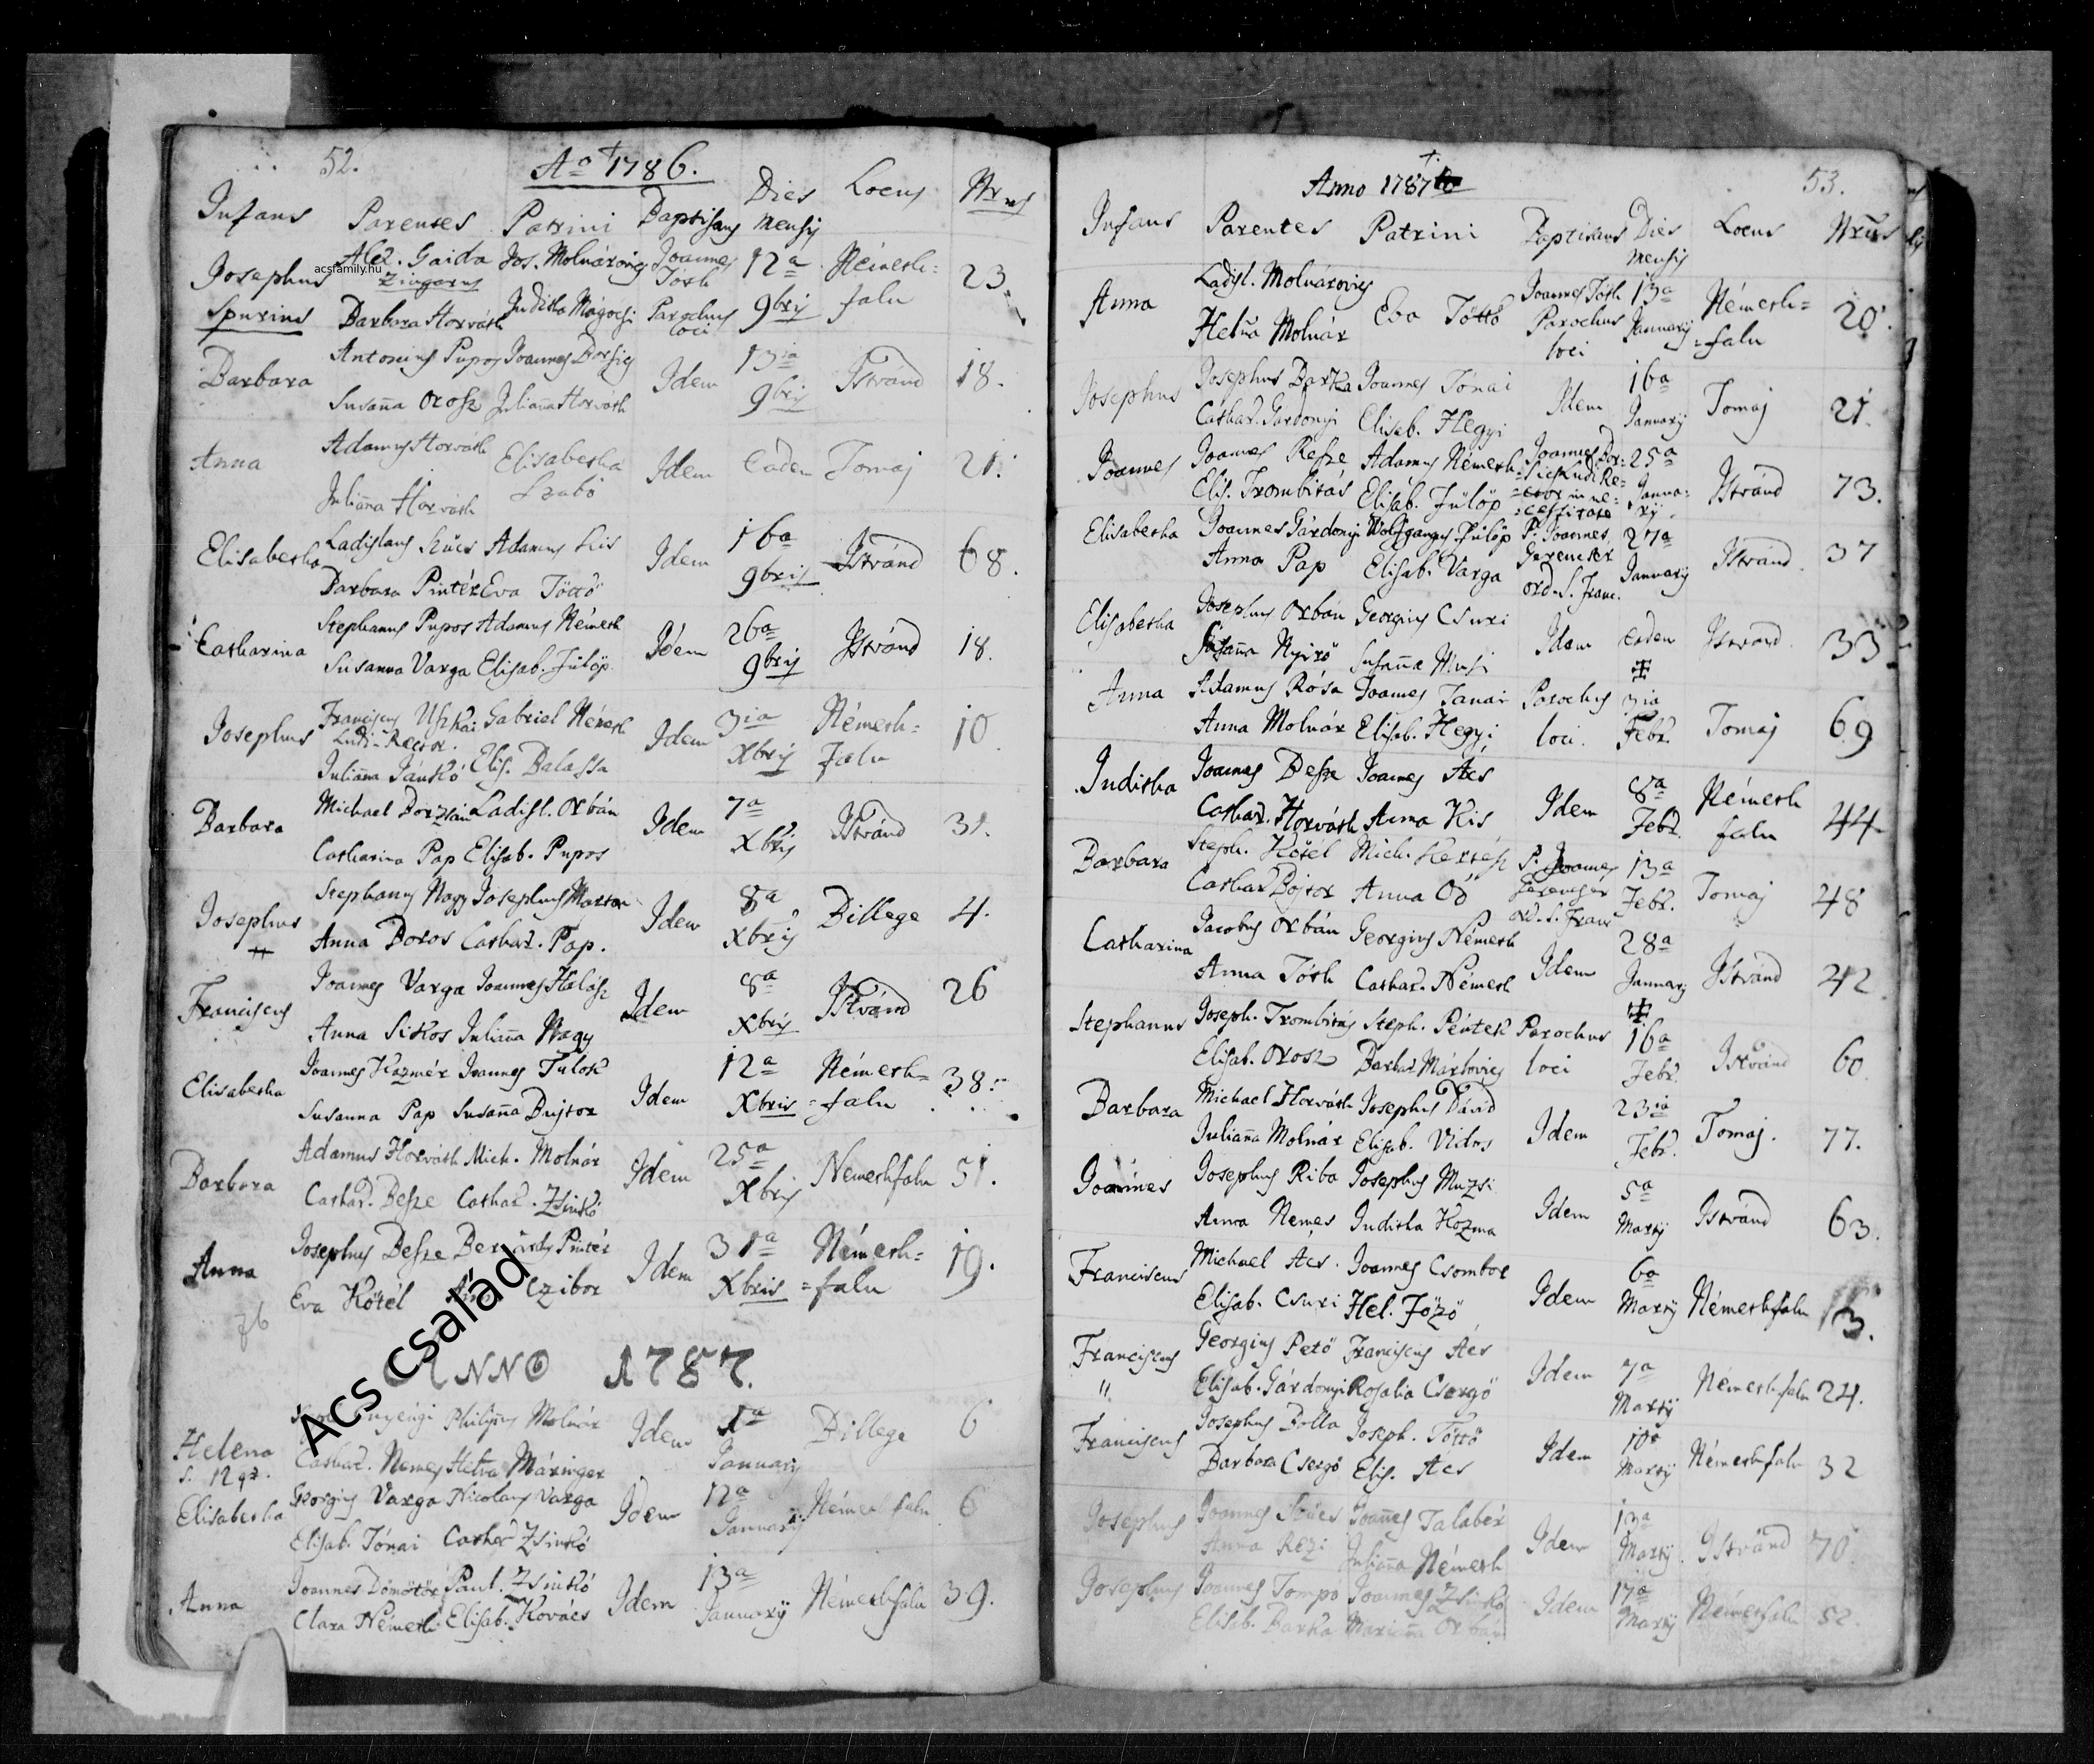 52.
Ao 1786.
Infans Parentes Patrini Baptisans Dies Mensis Locus Nrus
Josephus Alex. Gaida Jos. Molnárovics Joannes 12a Németh= 23.
acsfamily.hu
Zingarus Tóth
Spurius Barbara Horváth Juditha Mágocsi Parochus 9bris falu
loci
Barbara Antonius Pupos Joannes Dorsics Idem 13ia Istvánd 18.
Susana Orosz Juliana Horváth 9bris
Anna Adamus Horváth Elisabetha Idem Eadem Tomaj 21.
Juliana Horváth Szabó
Elisabetha Ladislaus Szücs Adamus Kis Idem 16a Istvánd 68.
Barbara Pintér Eva Töttö 9bris
Catharina Stephanus Pupos Adamus Németh Idem 26a Istvánd 18.
Susanna Varga Elisab. Fülöp 9bris
Josephus Franciscus Gabriel Németh Idem 3ia Németh= 10.
Ludi-Rector.
Juliana Jánkó Elis. Balassa Xbris falu
Barbara Michael Borzsán Ladisl. Orbán Idem 7a Istvánd 31.
Catharina Pap Elisab. Pupos Xbris
Josephus Stephanus Nagy Josephus Marton Idem 8a Billege 4.
Anna Boros Cathar. Pap. Xbris
Franciscus Joannes Varga Joannes Halász Idem 8a Istvánd 26
Anna Sikos Juliana Nagy Xbris
Elisabetha Joannes Kazmér Joannes Tulok Idem 12a Németh= 38.
Susanna Pap Susana Bujtor Xbris =falu
Barbara Adamus Horváth Mich. Molnár Idem 25a Némethfalu 51.
Cathar. Besze Cathar. Zsinkó Xbris
Anna Josephus Besze Pintér Idem 31a Németh= 19.
Eva Kötél Czibor Xbris =falu
Ács család
ANNO 1787.
Helena Philippus Molnár Idem 1a Billege 6
Cathar. Nemes Helena Máringer January
Elisabetha Georgius Varga Nicolaus Varga Idem 12a Némethfalu 6
Elisab. Tónai Cathar Zsinkó January
Anna Joannes Dömötör Paul. Zsinkó Idem 13a Némethfalu 39.
Clara Németh Elisab. Kovács January
53.
Anno 1787
Infans Parentes Patrini Baptisans Dies Mensis Locus Nrus
Anna Ladisl. Molnárovics Eva Töttö Joannes Tóth 13a Németh= 20.
Helena Molnár Parochus January =falu
loci
Josephus Josephus Barka Joannes Tónai Idem 16a Tomaj 21.
Cathar. Gardonyi Elisab. Hegyi January
Joannes Joannes Resze Adamus Németh Joannes Dor= 25a Istvánd 73.
Elis. Trombitás Elisab. Fülöp sics Ludi Re= Janua=
=ctor in ne= ry
=cessitate
Elisabetha Joannes Gárdonyi Wolfgangus Fülöp P. Joannes 27a Istvánd 37
Anna Pap Elisab. Varga Gerencsér January
ord. S. Franc.
Elisabetha Josephus Orbán Georgius Csuri Idem Eadem Istvánd 33
Susana Nyirö Susana Musi
Anna Adamus Rósa Joannes Tanai Parochus 3ia Tomaj 69
Anna Molnár Elisab. Hegyi loci. Febr.
Juditha Joannes Besze Joannes Ács Idem 8a Németh 44.
Cathar. Horváth Anna Kis Febr. falu
Barbara Steph. Kötél Mich. Kertész P. Joannes 13a Tomaj 48
Cathar Bojtor Anna Oó Gerencsér Febr.
ord. S. Franc
Catharina Jacobus Orbán Georgius Németh Idem 28a Istvánd 42
Anna Tóth Cathar. Németh January
Stephanus Joseph. Trombitás Steph. Péntek Parochus 16a Istvánd 60
Elisab. Orosz Barbar. Márkovics loci Febr.
Barbara Michael Horváth Josephus Dávid Idem 23ia Tomaj. 77.
Juliana Molnár Elisab. Vidos Febr.
Joannes Josephus Riba Josephus Muzsi Idem 5a Istvánd 63.
Anna Nemes Juditha Kozma Marty
Franciscus Michael Ács. Joannes Csombor Idem 6a Némethfalu 13.
Elisab. Csuri Hel. Fözö Marty
Franciscus Georgius Petö Franciscus Ács Idem 7a Némethfalu 24.
" Elisab. Gárdonyi Rosalia Csergö Marty
Franciscus Josephus Bolla Joseph. Töttö Idem 10a Némethfalu 32
Barbara Csergö Elis. Ács Marty
Josephus Joannes Szücs Joannes Talabér Idem 13a Istvánd 70.
Anna Rezi Juliana Németh Marty
Josephus Joannes Tompo Joannes Zsinkó Idem 17a Némethfalu 52.
Elisab. Barka Mariana Orbán Marty